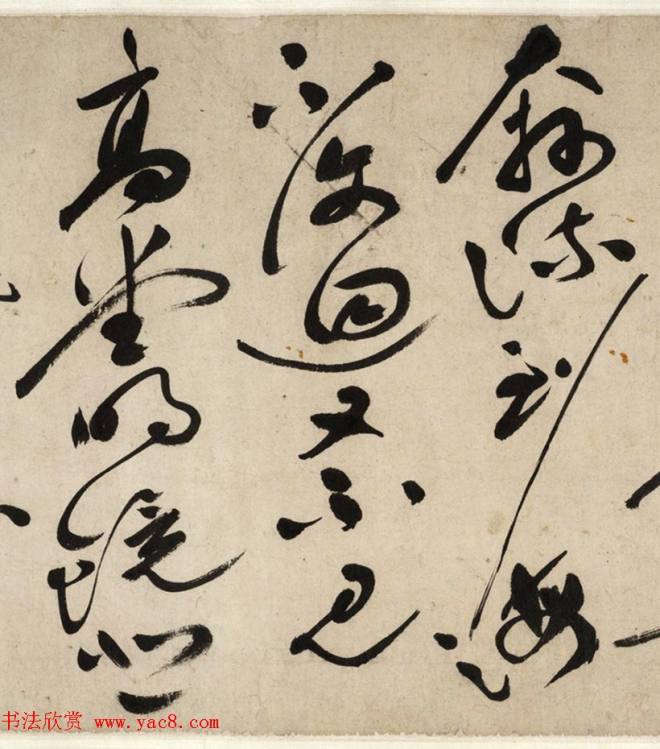 奔流到海
不復迴又不見
高堂明鏡悲
书法欣赏 www.yac8.com